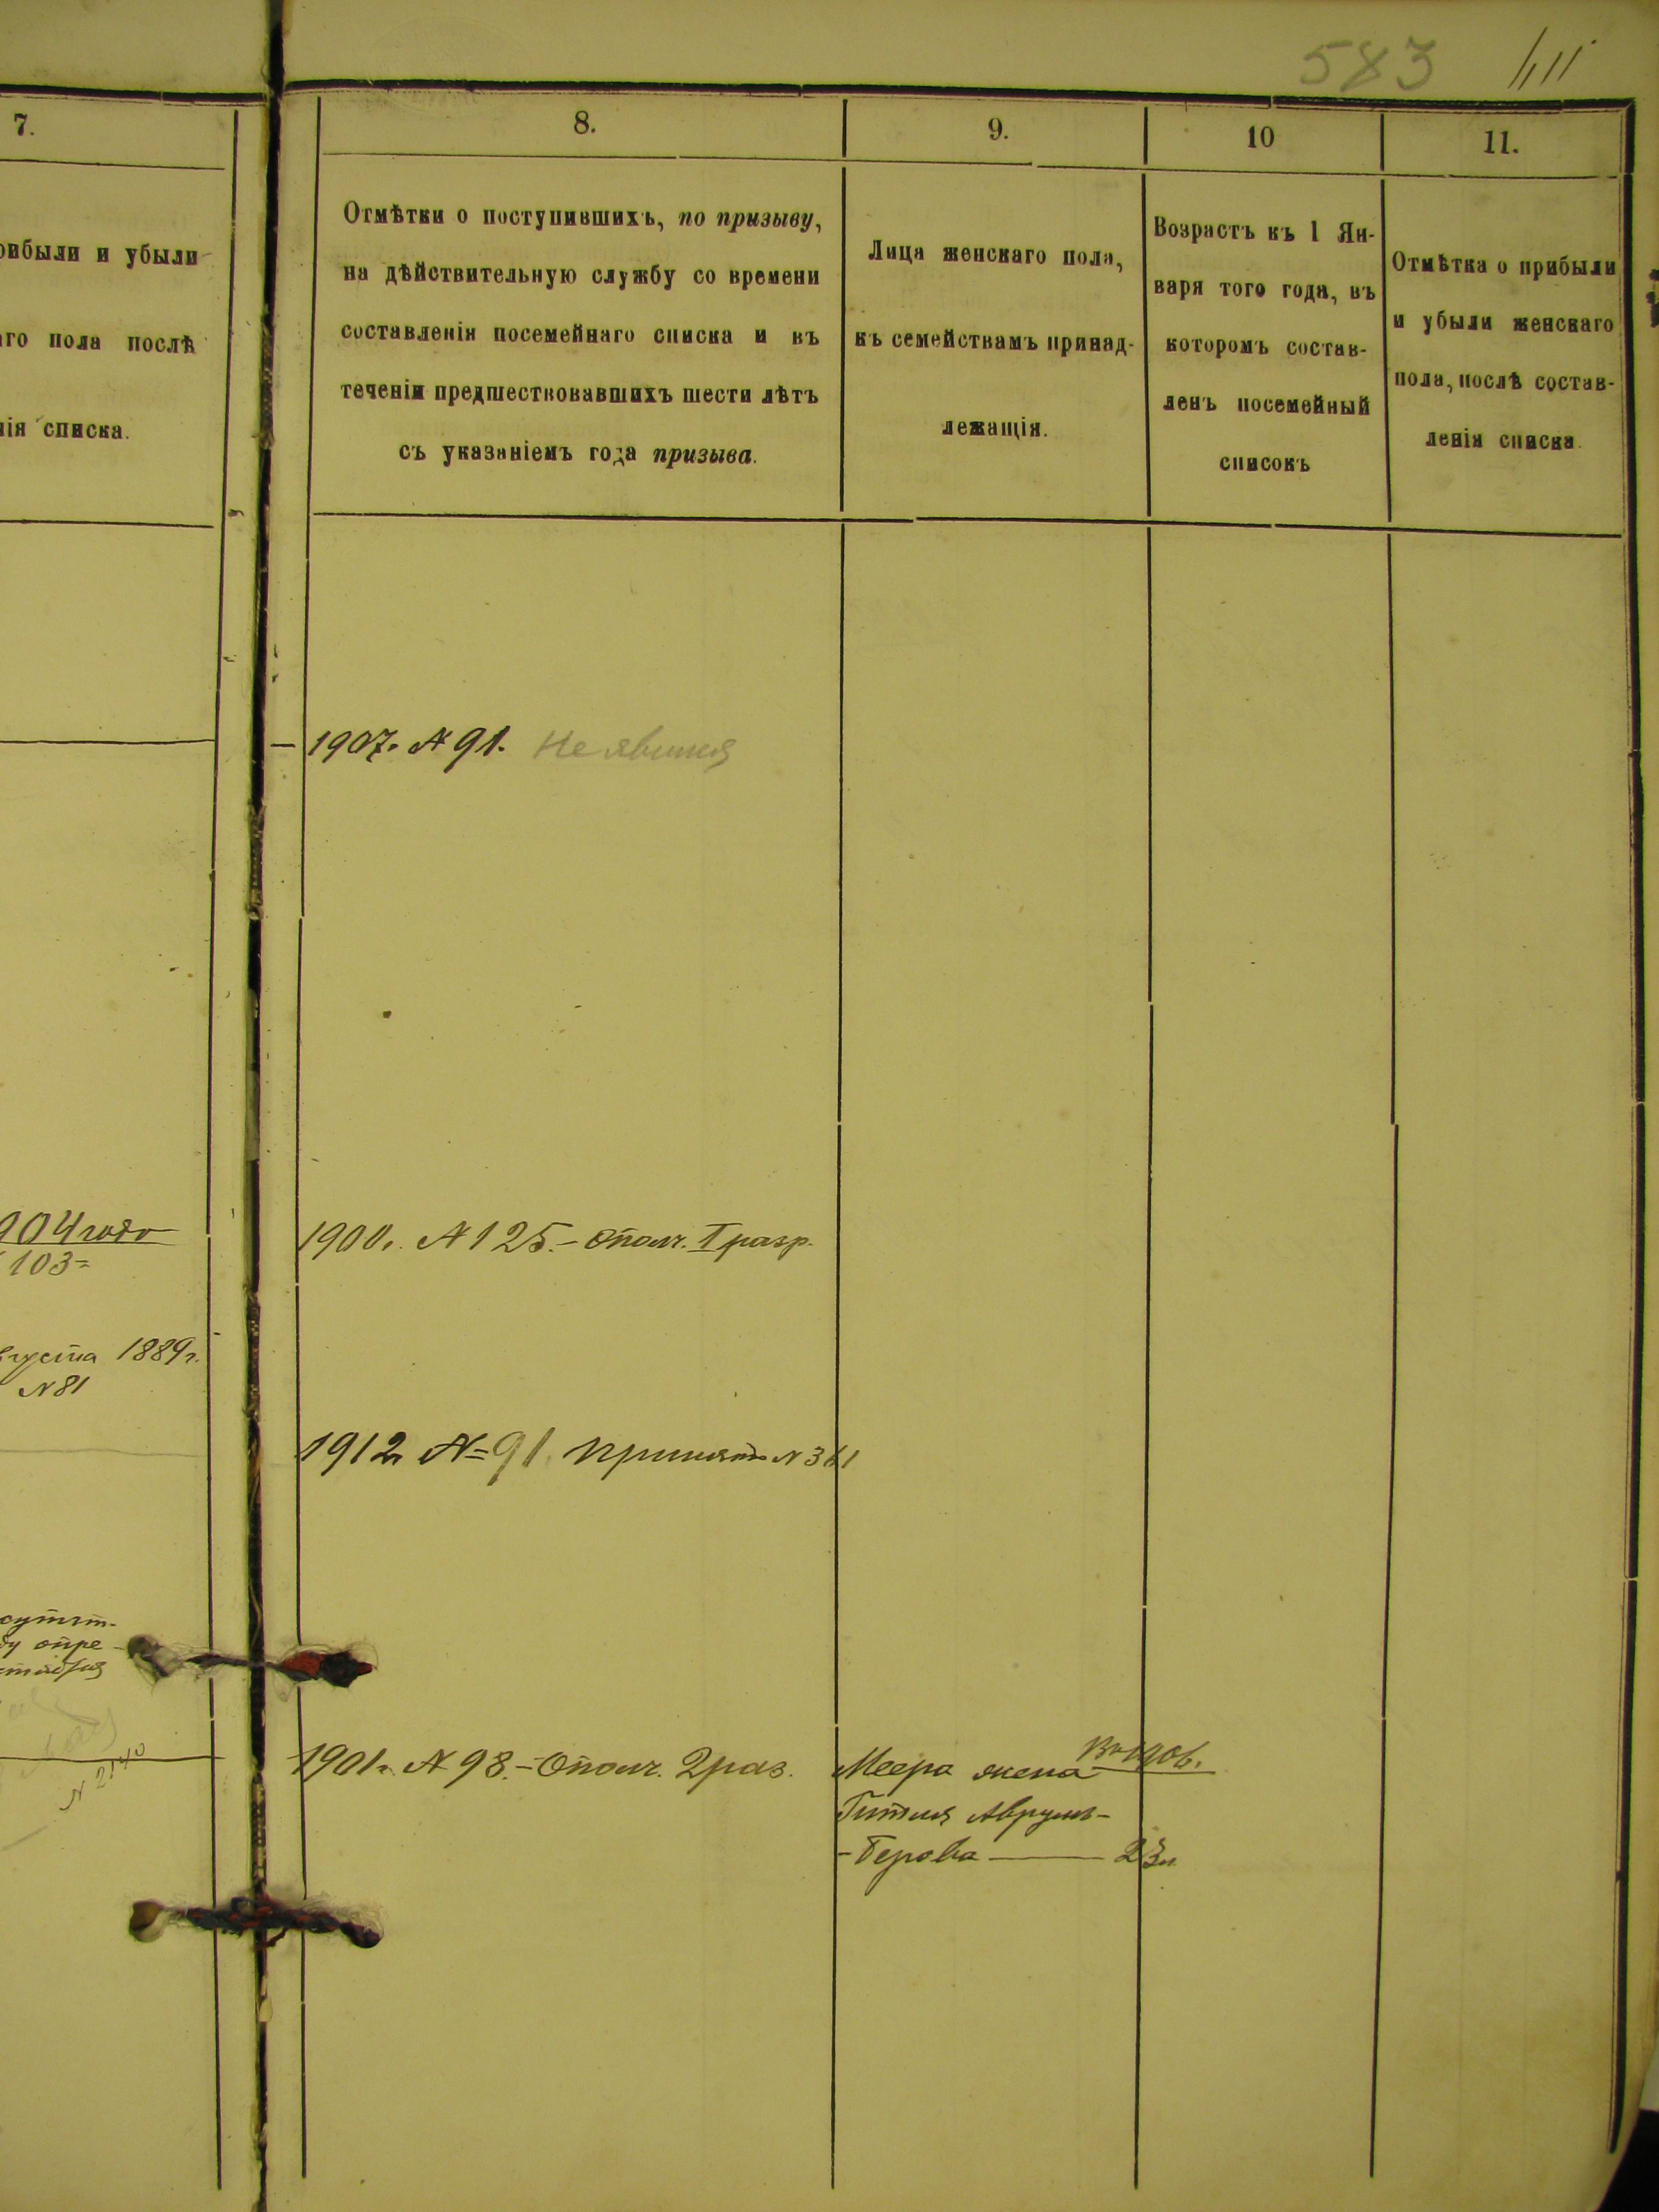 583
7.
8.
9.
10
11.
рибыли и убыли
аго пола послѣ
нія списка.
Отмѣтки о поступившихъ, по призыву,
на дѣйствительную службу со времени
составленія посемейнаго списка и въ
теченіи предшествовавшихъ шести лѣтъ
съ указаніемъ года призыва.
Лица женскаго пола,
къ семействамъ принад-
лежащія.
Возрастъ къ 1 Ян-
варя того года, въ
которомъ состав-
ленъ посемейный
списокъ
Отмѣтка о прибыли
и убыли женскаго
пола, послѣ состав-
ленія списка.
1907. № 91. Не явился
904 годо
103=
1900г. № 125.- Ополч. I разр.
вгуста 1889г.
№ 81
1912 №=91. принятъ № 361
опре-
1901г. № 98.- Ополч. 2 раз.
№ 2140
Меера жена Въ 1906.
Гитля Аврумъ-
-Берова — 23 л.